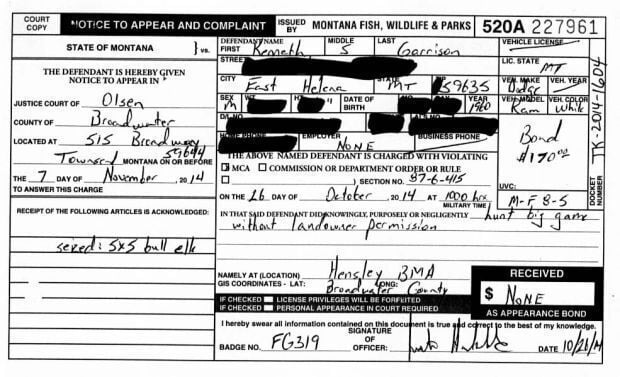 COURT COPY
NOTICE TO APPEAR AND COMPLAINT
ISSUED BY MONTANA FISH, WILDLIFE & PARKS
520A 227961
STATE OF MONTANA } vs.
THE DEFENDANT IS HEREBY GIVEN
NOTICE TO APPEAR IN
JUSTICE COURT OF Olsen
COUNTY OF Broadwater
LOCATED AT 515 Broadway
59644
Townsend MONTANA ON OR BEFORE
THE 7 DAY OF November, 2014
TO ANSWER THIS CHARGE
RECEIPT OF THE FOLLOWING ARTICLES IS ACKNOWLEDGED:
sexed: 5x5 bull elk
DEFENDANT NAME
FIRST Kenneth MIDDLE S LAST Garrison
STREET
CITY East Helena STATE MT ZIP 59635
SEX M WT HT " DATE OF BIRTH MO YEAR 1960
HOME PHONE EMPLOYER NONE BUSINESS PHONE
THE ABOVE NAMED DEFENDANT IS CHARGED WITH VIOLATING
MCA COMMISSION OR DEPARTMENT ORDER OR RULE
SECTION NO. 87-6-415
ON THE 26 DAY OF October, 2014 AT 1000 hrs
MILITARY TIME
IN THAT SAID DEFENDANT DID KNOWINGLY, PURPOSELY OR NEGLIGENTLY hunt big game
without landowner permission
NAMELY AT (LOCATION) Hensley BMA
GIS COORDINATES - LAT: LONG:
Broadwater County
IF CHECKED LICENSE PRIVILEGES WILL BE FORFEITED
IF CHECKED PERSONAL APPEARANCE IN COURT REQUIRED
VEHICLE LICENSE
LIC. STATE
MT
VEH. MAKE Dodge VEH. YEAR
VEH. MODEL Ram VEH. COLOR White
Bond
$170.00
UVC:
M-F 8-5
DOCKET NUMBER TK-2014-1604
RECEIVED
$ NONE
AS APPEARANCE BOND
I hereby swear all information contained on this document is true and correct to the best of my knowledge.
BADGE NO. FG319 SIGNATURE OF OFFICER: DATE 10/26/14